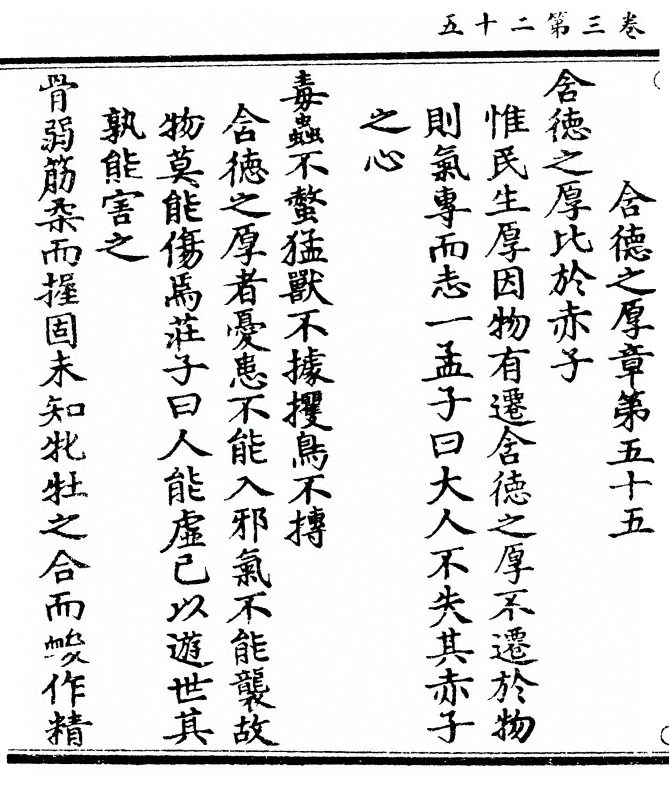 卷三第二十五
含德之厚章第五十五
含德之厚比於赤子
惟民生厚因物有遷含德之厚不遷於物
則氣專而志一孟子曰大人不失其赤子
之心
毒蟲不螫猛獸不據攫鳥不搏
含德之厚者憂患不能入邪氣不能襲故
物莫能傷焉莊子曰人能虛己以遊世其
孰能害之
骨弱筋柔而握固未知牝牡之合而䘒作精